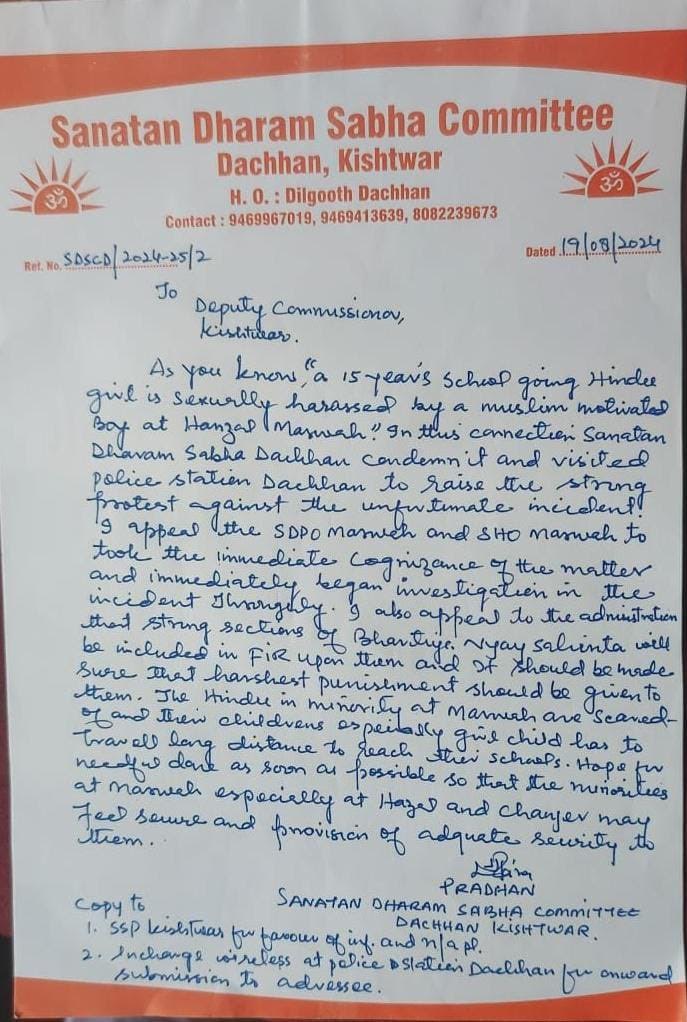 Sanatan Dharam Sabha Committee
Dachhan, Kishtwar
H. O. : Dilgooth Dachhan
Contact : 9469967019, 9469413639, 8082239673
ॐ
ॐ
Ref. No. SDSCD/2024-25/2
Dated 19/08/2024
To
Deputy Commissionor,
Kishtwar.
As you know, "a 15-year's school going Hindu
girl is sexually harassed by a muslim motivated
Boy at Hanzal Marwah". In this connection Sanatan
Dharam Sabha Dachhan condemn it and visited
police station Dachhan to raise the strong
protest against the unfortunate incident!
I appeal the SDPO Marwah and SHO Marwah to
took the immediate cognizance of the matter
and immediately began investigation in the
incident throughly. I also appeal to the
that strong sections of Bhartiya Nyay Sahinta will
be included in FIR upon them and It should be made
sure that harshest punishment should be given to
them. The Hindu in minority at Marwah are scared-
of and their childrens especially girl child has to
travell long distance to reach their schools. Hope for
needful done as soon as possible so that the minorities
at Marwah especially at Hazal and Chanjer may
feel secure and provision of adquate security to
them.
PRADHAN
SANATAN DHARAM SABHA COMMITTEE
DACHHAN KISHTWAR.
Copy to
1. SSP Kishtwar for favour of inf. and n/a pl.
2. Incharge wireless at police station Dachhan for onward
submission to advessee.